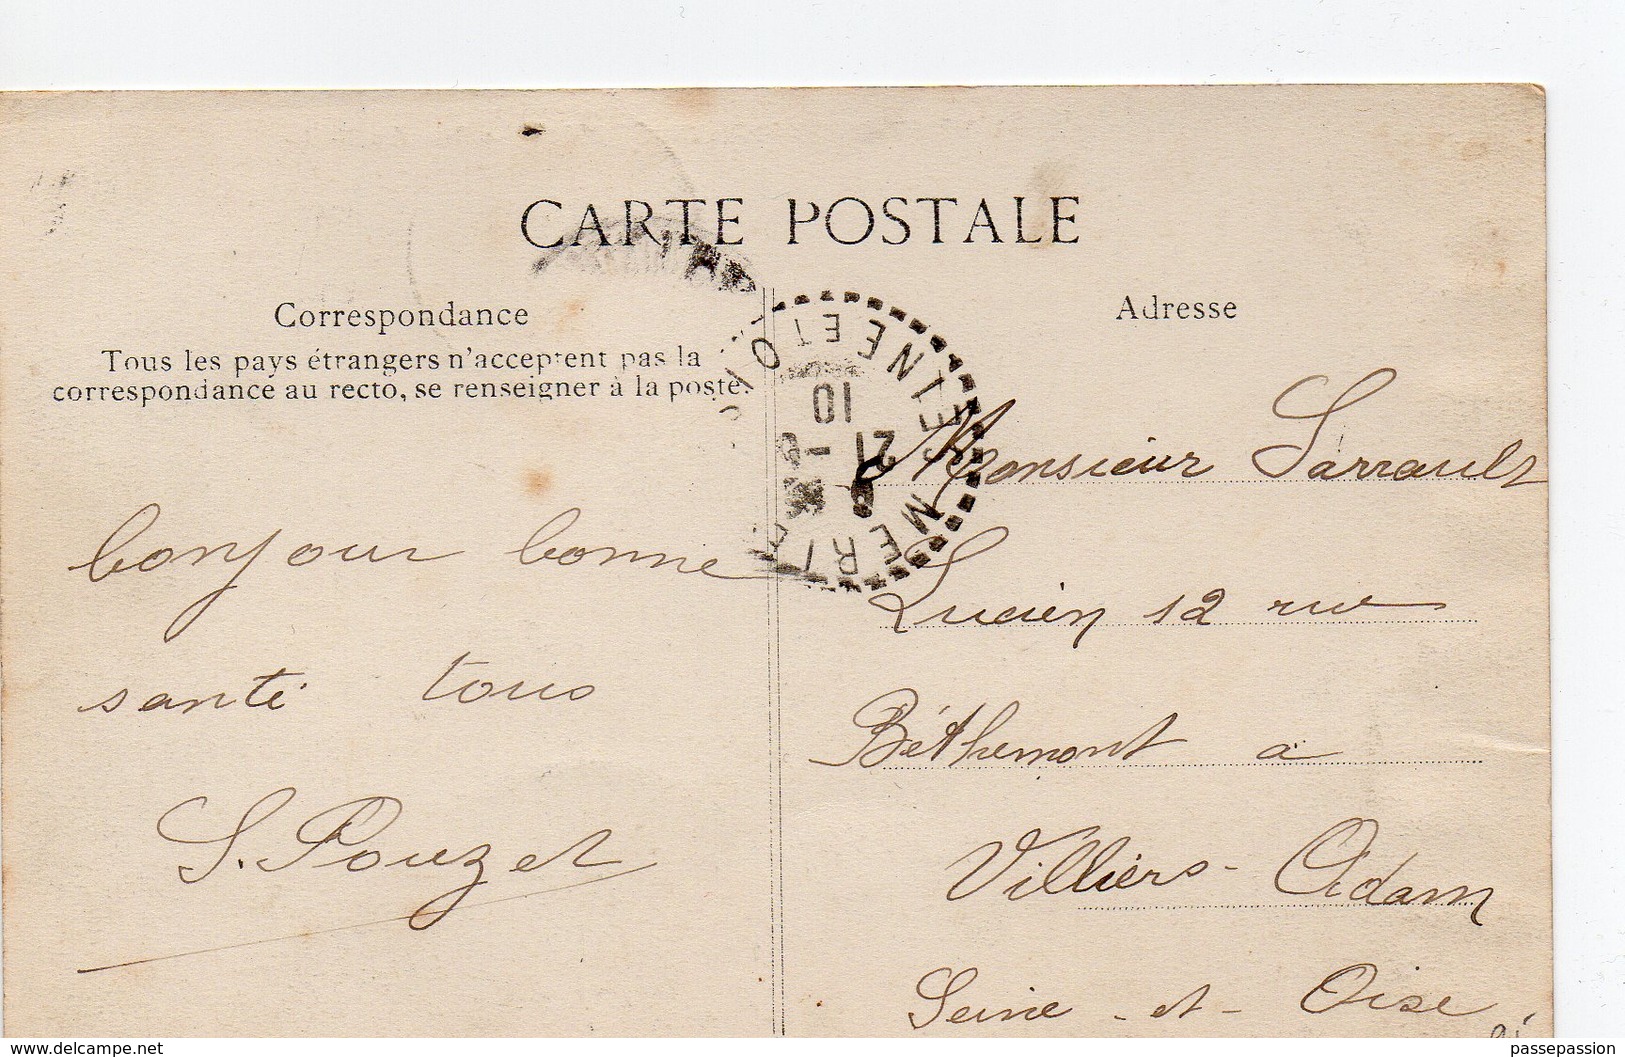 CARTE POSTALE
Correspondance
Tous les pays étrangers n'acceptent pas la
correspondance au recto, se renseigner à la poste.
bonjour bonne
santé tous
S. Pouzet
Adresse
Monsieur Sarrault
Lucien 12 rue
Béthemont a
Villiers-Adam
Seine-et-Oise
MERI
SEINE ET OISE
21
10
www.delcampe.net
passepassion